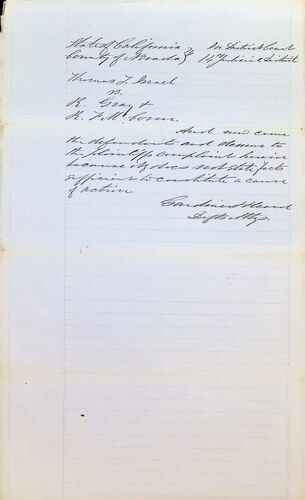 State of California } In District Court
County of Nevada } 14th Judicial District
Thomas L. Israel
vs.
R. Gray &
R. F. M. 
And now come
the defendants and demur to
the plaintiffs complaint herein
because it does not state facts
sufficient to constitute a cause
of action
Gardiner &
Defts Attys.